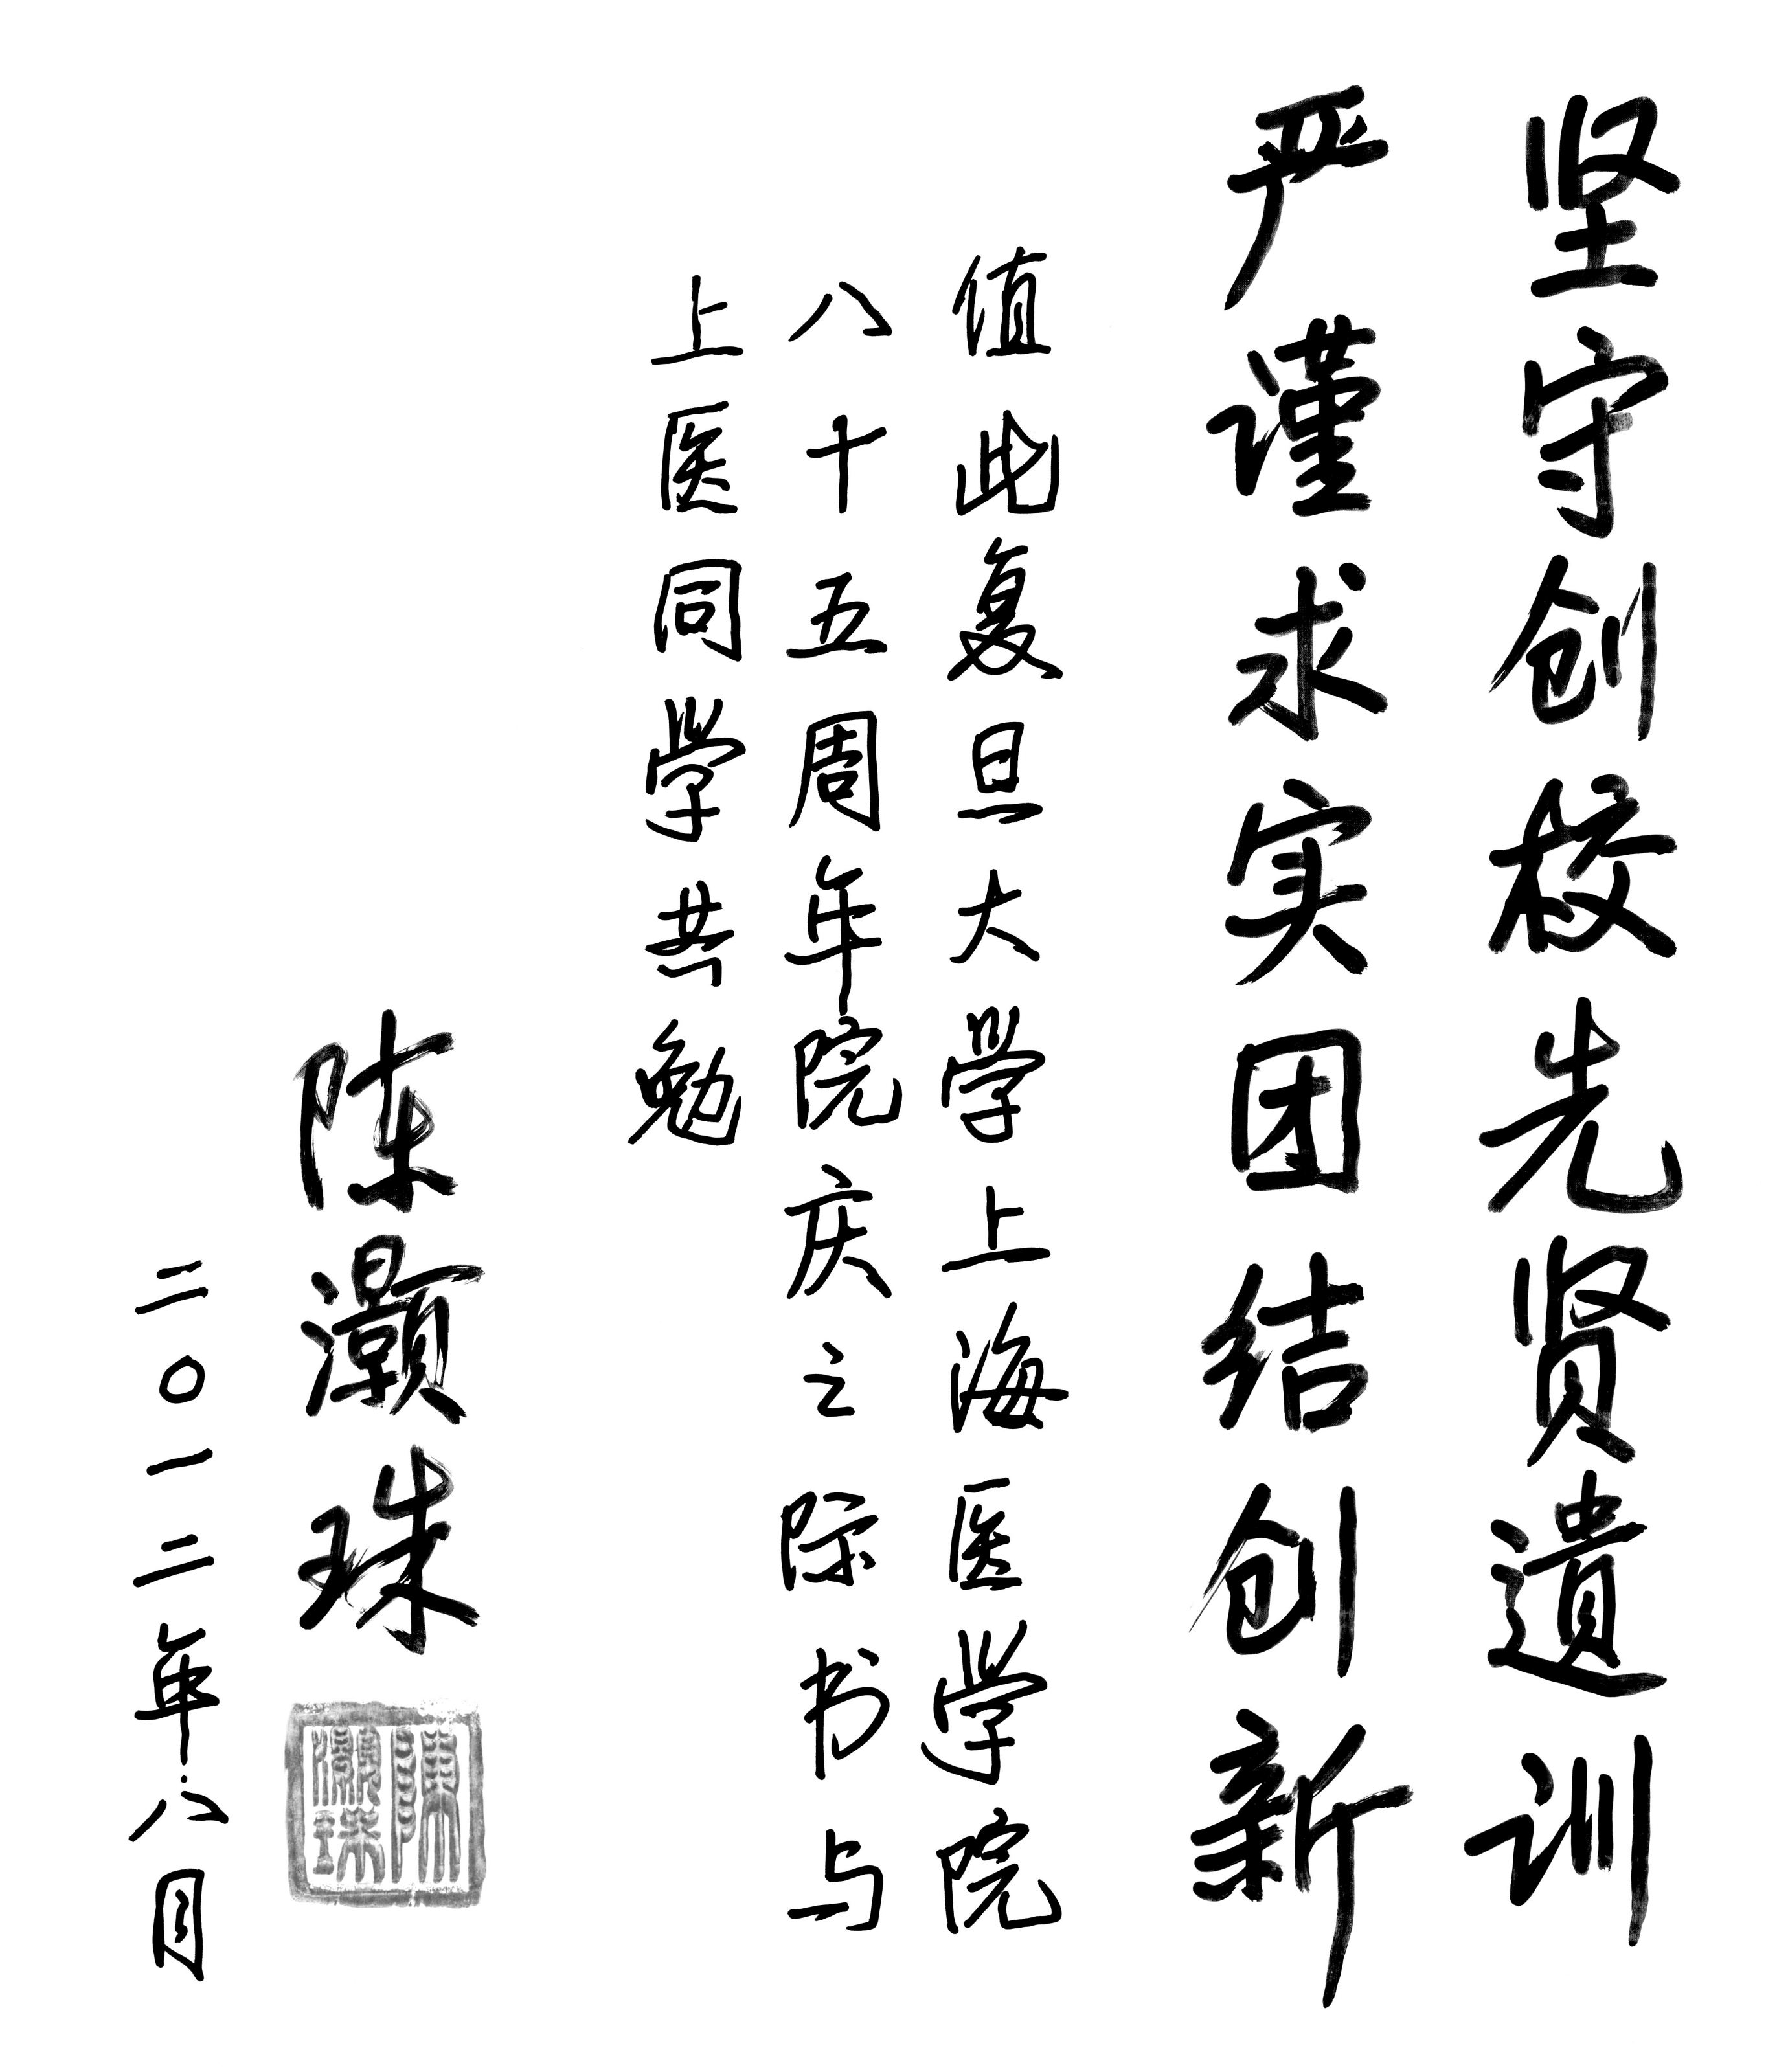 坚守创校先贤遗训
严谨求实团结创新
值此复旦大学上海医学院
八十五周年院庆之际书与
上医同学共勉
陈灏珠
陳灝珠
二〇一二年八月